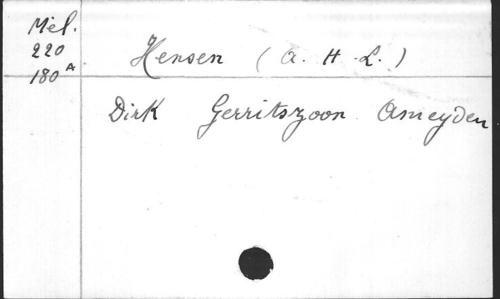 Mél.
220
180 A
Hensen (A. H. L.)
Dirk Gerritszoon Ameyden